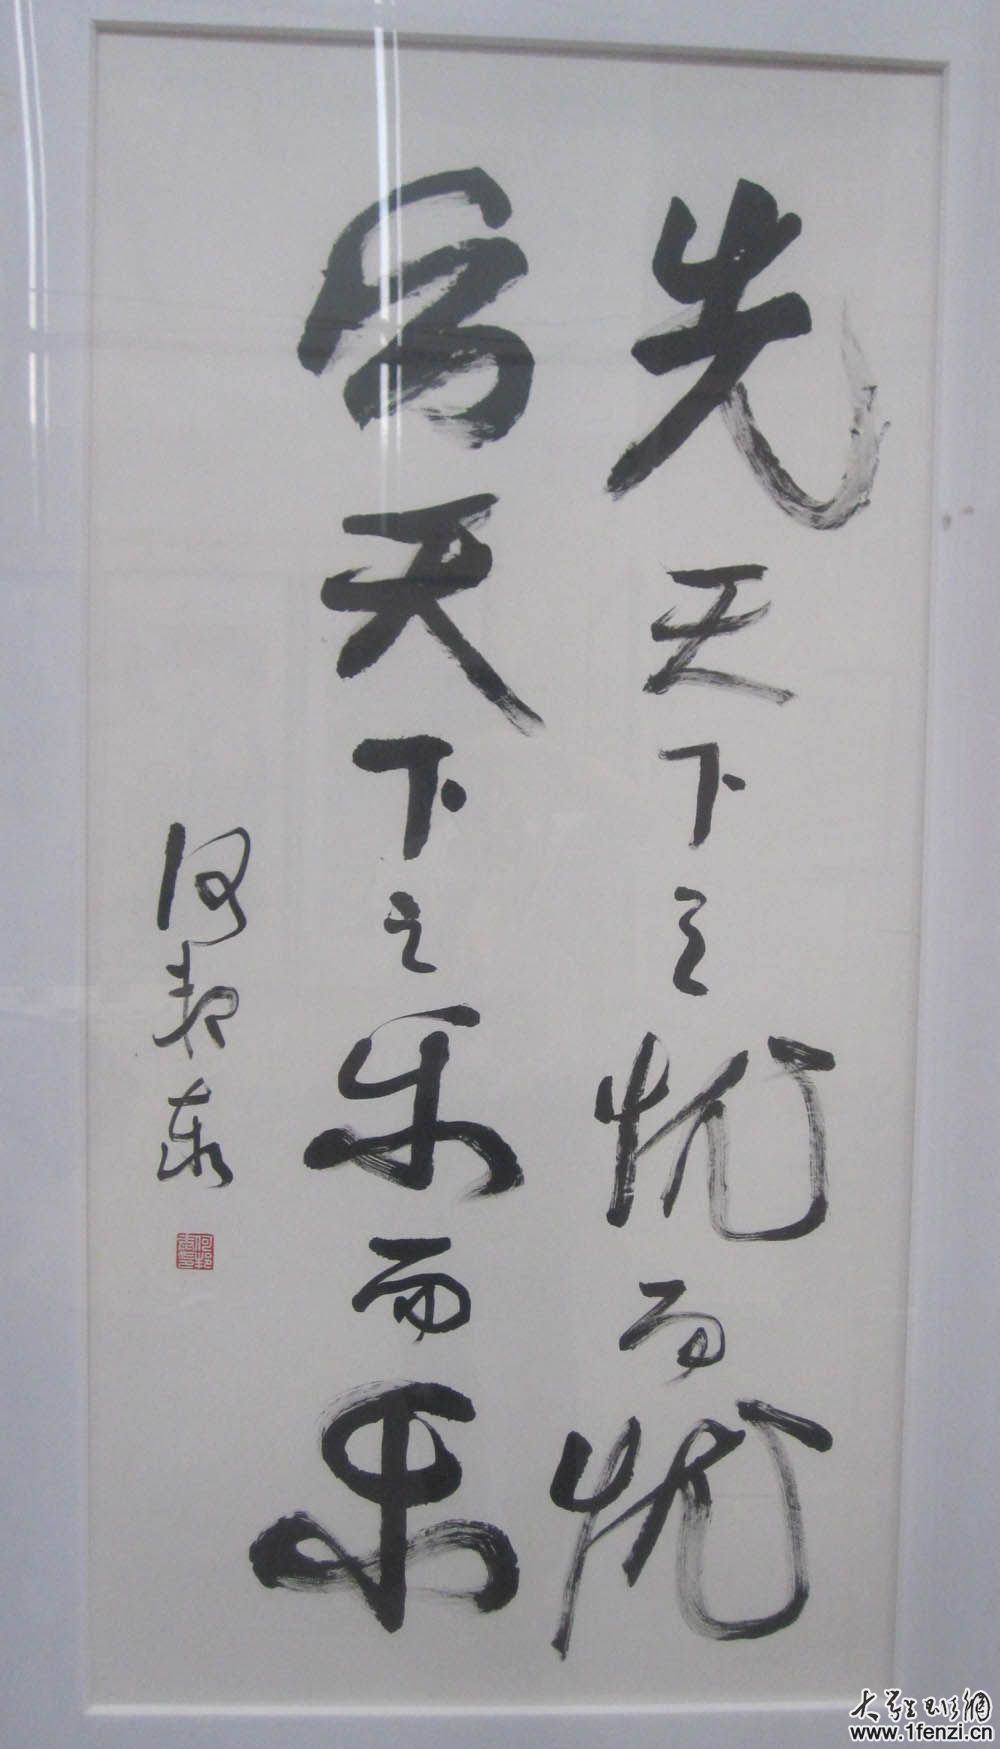 先天下之忧而忧
后天下之乐而乐
何邦泰
www.1fenzi.cn